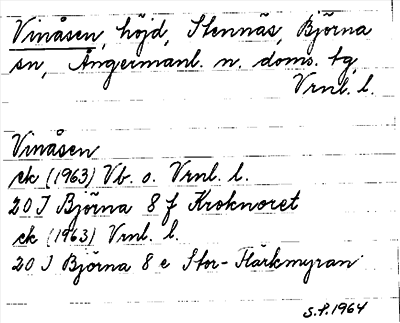 Vinåsen, höjd, Stennäs, Björna
sn, Ångermanl. n. doms. tg,
Vrnl. l.
Vinåsen
ek (1963) Vb. o. Vrnl. l.
20 I Björna 8 f Kroknoret
ek (1963) Vrnl. l.
20 I Björna 8 e Stor-Flärkmyran
S.P. 1964